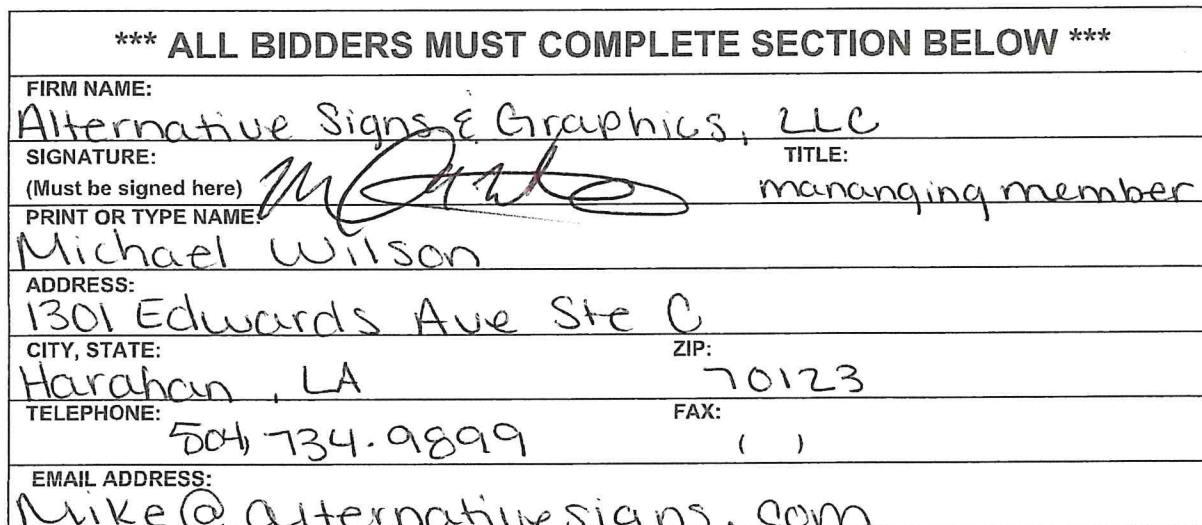 *** ALL BIDDERS MUST COMPLETE SECTION BELOW ***
FIRM NAME:
Alternative Signs & Graphics, LLC
SIGNATURE: TITLE:
(Must be signed here) mananging member
PRINT OR TYPE NAME:
Michael Wilson
ADDRESS:
1301 Edwards Ave Ste C
CITY, STATE: ZIP:
Harahan, LA 70123
TELEPHONE: FAX:
504) 734-9899 ( )
EMAIL ADDRESS:
Mike@alternativesigns.com